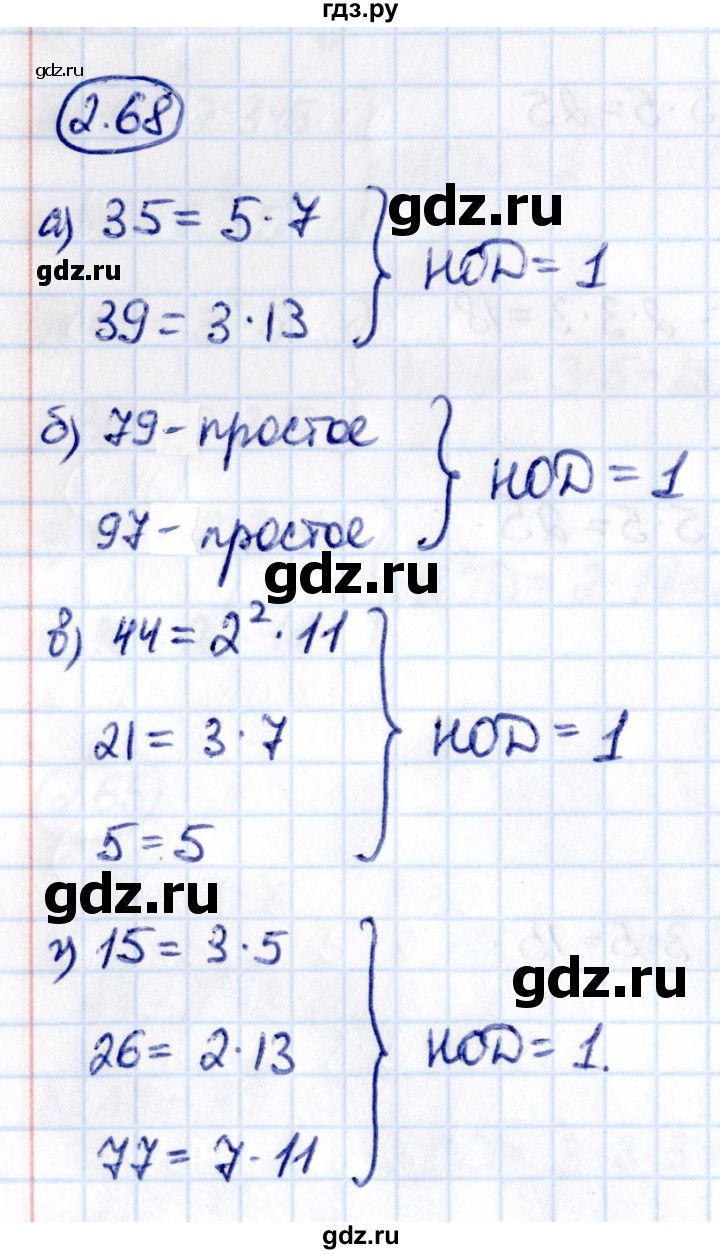 гдз.ру
gdz.ru
2.68
а) 35 = 5 · 7
gdz.ru
gdz.ru
39 = 3 · 13
НОД = 1
б) 79 - простое
97 - простое
НОД = 1
gdz.ru
в) 44 = 2² · 11
21 = 3 · 7
5 = 5
НОД = 1
gdz.ru
г) 15 = 3 · 5
gdz.ru
26 = 2 · 13
77 = 7 · 11
НОД = 1.
gdz.ru